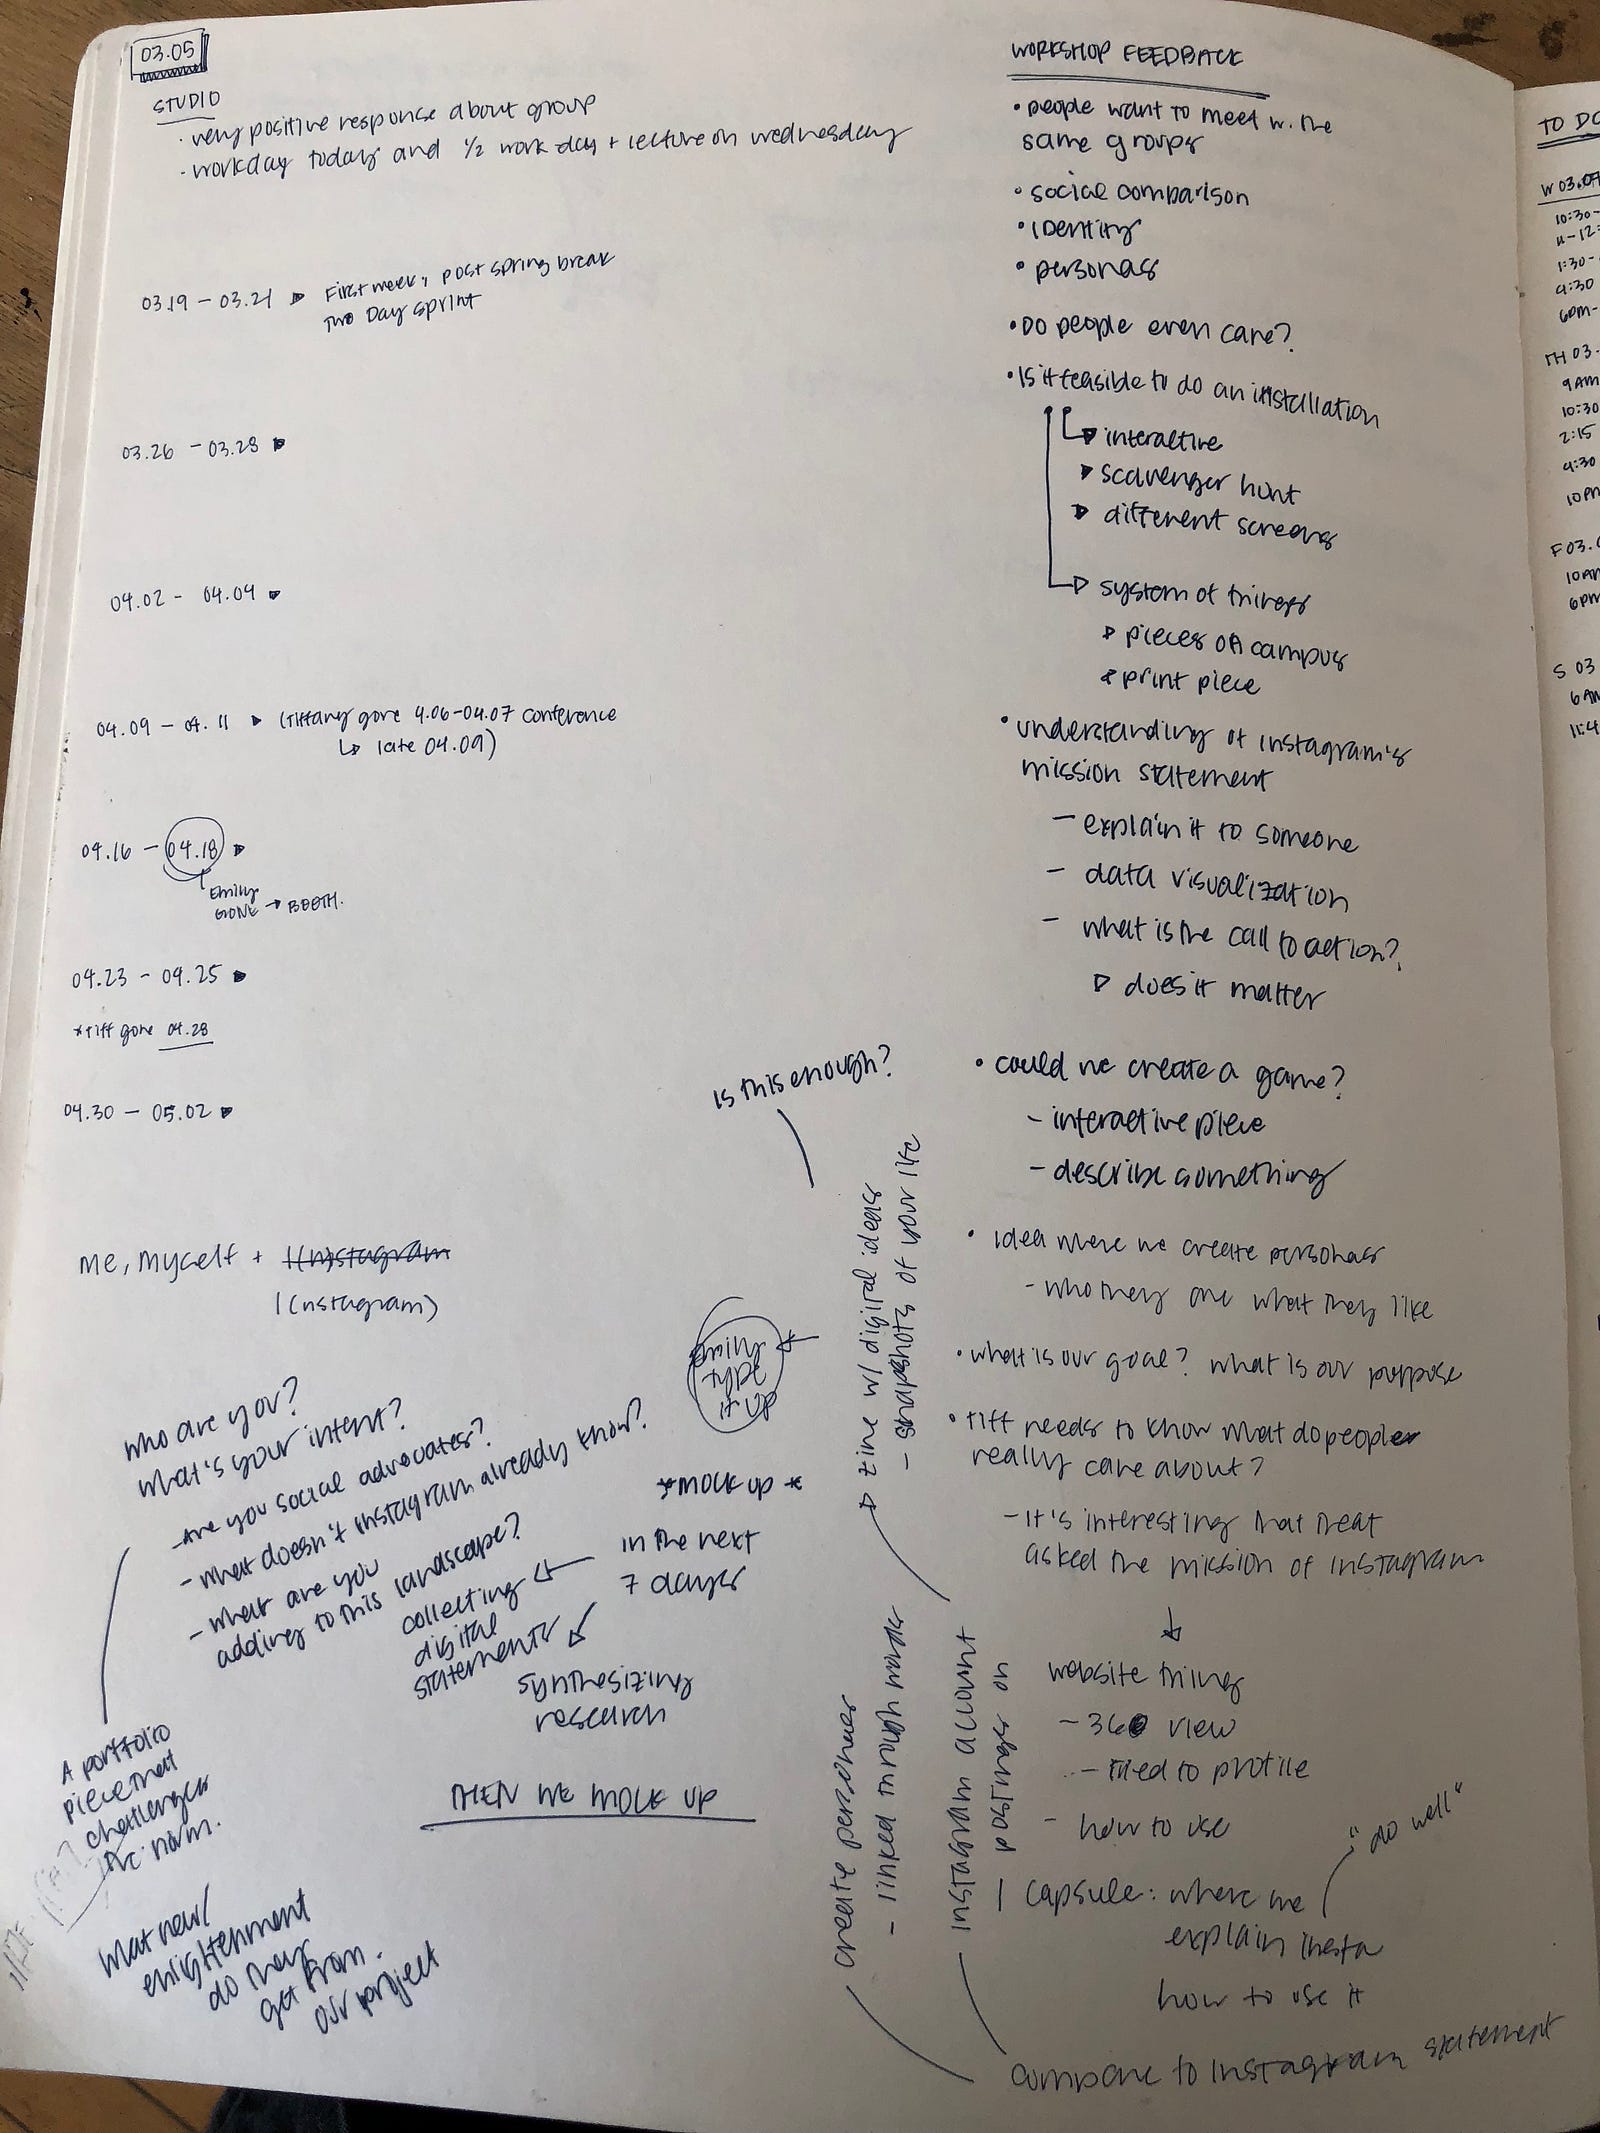 03.05
STUDIO
· very positive response about group
· workday today and 1/2 work day + lecture on wednesday
03.19 - 03.21 ▸ First week, post spring break
Two Day sprint
03.26 - 03.28 ▸
04.02 - 04.04 ▸
04.09 - 04.11 ▸ (Tiffany gone 4.06-04.07 conference
↳ late 04.09)
04.16 - 04.18 ▸
Emily
GONE → BOOTH.
04.23 - 04.25 ▸
*tiff gone 04.28
04.30 - 05.02 ▸
me, myself + I(n)stagram
I(nstagram)
who are you?
what's your intent?
- Are you social advocates?
- what doesn't instagram already know?
- what are you
adding to this landscape?
Emily
type
it up
*mock up*
in the next
7 days
collecting
digital
statements
synthesizing
research
THEN WE MOCK UP
A portfolio
piece that
challenges
the norm.
What new/
enlightenment
do they
get from
our project
WORKSHOP FEEDBACK
• people want to meet w. the
same groups
• social comparison
• identity
• personas
• Do people even care?
• Is it feasible to do an installation
▸ interactive
▸ scavenger hunt
▸ different screens
▸ system of things
▸ pieces on campus
print piece
• understanding of instagram's
mission statement
- explain it to someone
- data visualization
- what is the call to action?
▸ does it matter
• could we create a game?
- interactive piece
- describe something
• idea where we create personas
- who they are what they like
• what is our goal? what is our purpose
• tiff needs to know what do people
really care about?
- it's interesting that
asked the mission of instagram
website thing
- 360 view
- tied to profile
- how to use
1 capsule: where we
explain insta
how to use it
"do well"
compare to instagram statement
is this enough?
▸ zine w/ digital ideas
- snapshots of your life
create personas
- linked through
instagram account
postings on
TO DO
W 03.07
10:30-
11-12:
1:30-
4:30
6PM-
TH 03.
9AM
10:30
2:15
4:30
10PM
F 03.
10AM
6PM
S 03
6AM
11:4